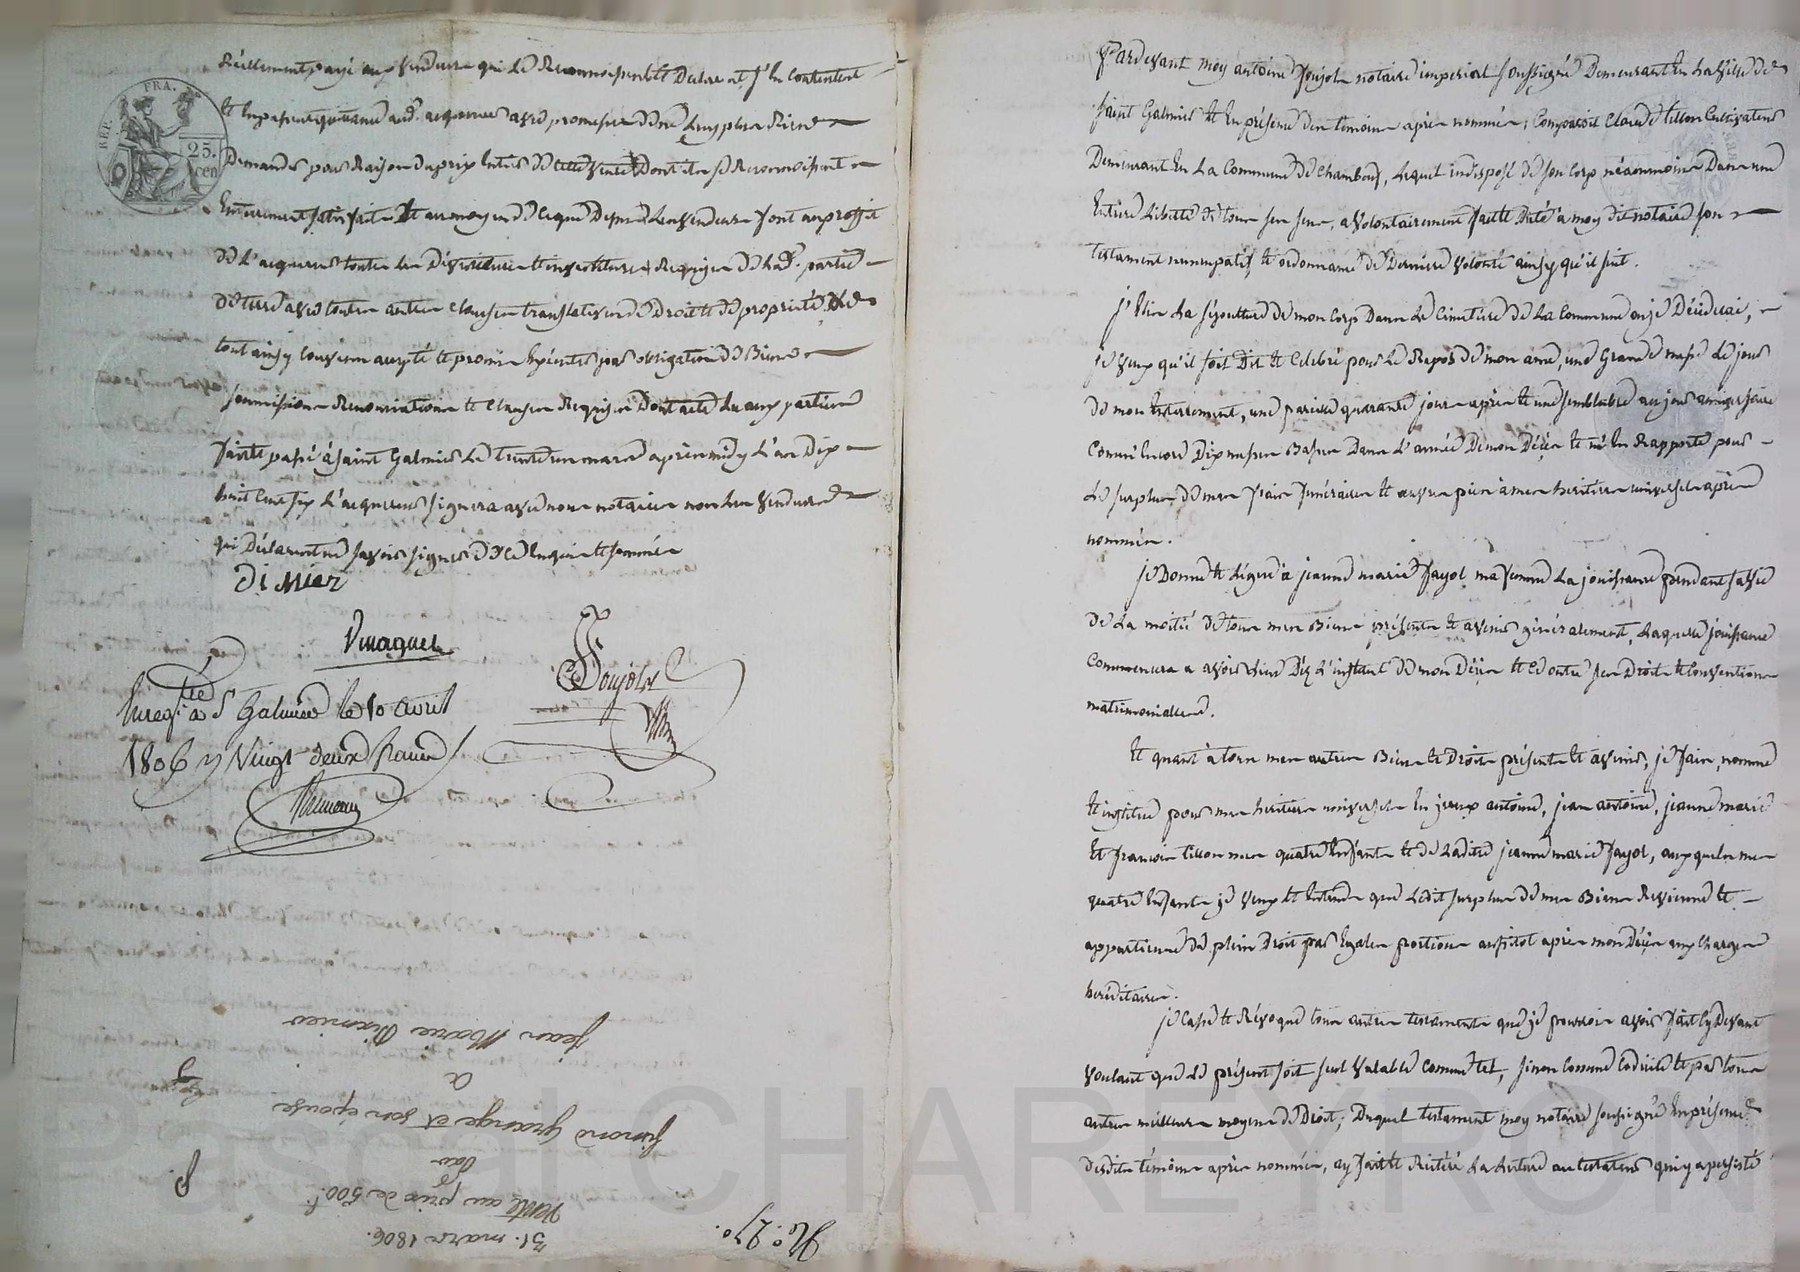 REP. FRA.
25. cen
réellement payé aux vendeurs qui le reconnoissent de dire et s'en contentent
et en passent quittance aud. acquereur avec promesse de ne luy plus rien
demander pour raison du prix entier de cette vente dont ils se reconnoissent
entierement satisfaits et au moyen de ce que dessus les vendeurs font au proffit
de l'acquereur toutes les devestitures et investitures requises de lad. partie
de terre avec toutes autres clauses translatives de droit et de proprieté
tout ainsy convenu accepté et promis executer par obligation de biens
soumissions renonciations et clauses requises dont acte lu aux parties
fait et passé à saint Galmier le trente un mars après midy l'an dix
huit cent six l'acquereur signera avec nous notaires non les vendeurs
qui déclarent ne savoir signer de ce enquis et sommés
dimier
Poujol
Enreg. à St Galmier le 10 avril
1806 Vingt deux francs
31. mars 1806.
Vente au prix de 500f.
par
grange et son épouse
a
jean Marie
No. 270.
Pardevant moy antoine Poujol notaire imperial soussigné demeurant en la ville de
saint Galmier et en présence des témoins après nommés, comparoit Claude tisson cultivateur
demeurant en la commune de Chambœuf, lequel indisposé de son corps néanmoins dans une
entiere liberté de tous ses sens, a volontairement fait et dicté a moy dit notaire son
testament nuncupatif et ordonnance de derniere volonté ainsy qu'il suit.
j'élis la sépulture de mon corps dans le cimetiere de la commune où je décéderai,
je veux qu'il soit dit et celebré pour le repos de mon ame, une grande messe le jour
de mon enterrement, une pareille quarante jours après et une semblable au jour anniversaire
comm'encore dix messes basses dans l'année de mon décès et m'en rapporte pour
le surplus de mes frais funéraires et œuvres pies à mes heritiers universels après
nommés.
je donne et légue à jeanne marie fayol ma femme la jouissance pendant sa vie
de la moitié de tous mes biens présents et avenir généralement, laquelle jouissance
commencera a avoir lieu dez l'instant de mon décès et ce outre ses droits et conventions
matrimoniales.
Et quant à tous mes autres biens et droits présents et avenir, je fais, nomme
et institue pour mes heritiers universels en jceux antoine, jean antoine, jeanne marie
et francois tisson mes quatre enfants et de ladite jeanne marie fayol, auxquels mes
quatre enfants je veux et entends que ledit surplus de mes biens revienne et
appartienne de plein droit par égales portions aussitot après mon décès aux charges
héréditaires.
je casse et révoque tous autres testaments que je pourrois avoir fait cy devant
voulant que le présent soit seul valable comme tel, sinon comme codicile et par tous
autres meilleurs moyens de droit; duquel testament moy notaire soussigné en présence
desdits témoins après nommés, ay fait et réitéré la lecture au testateur qui y a persisté
Pascal CHAREYRON